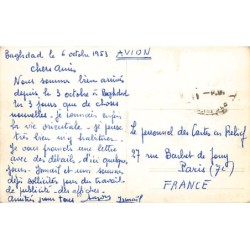 Baghdad le 6 octobre 1953
AVION
chers Amis,
Nous sommes bien arrivés
depuis le 3 octobre à Baghdad
les 3 jours que de choses
nouvelles. Je connais enfin
la vie orientale. Je pense
très bien m'y habituer.
Je vous promets une lettre
avec des détails, d'ici quelques
jours. Ismaïl et moi sommes
déjà sollicités pour du travail
de publicité - des affiches.
Amitiés à vous tous
Ismaïl
Le personnel des Cartes en Relief
27 rue Barbet de Jouy
Paris (7e)
FRANCE